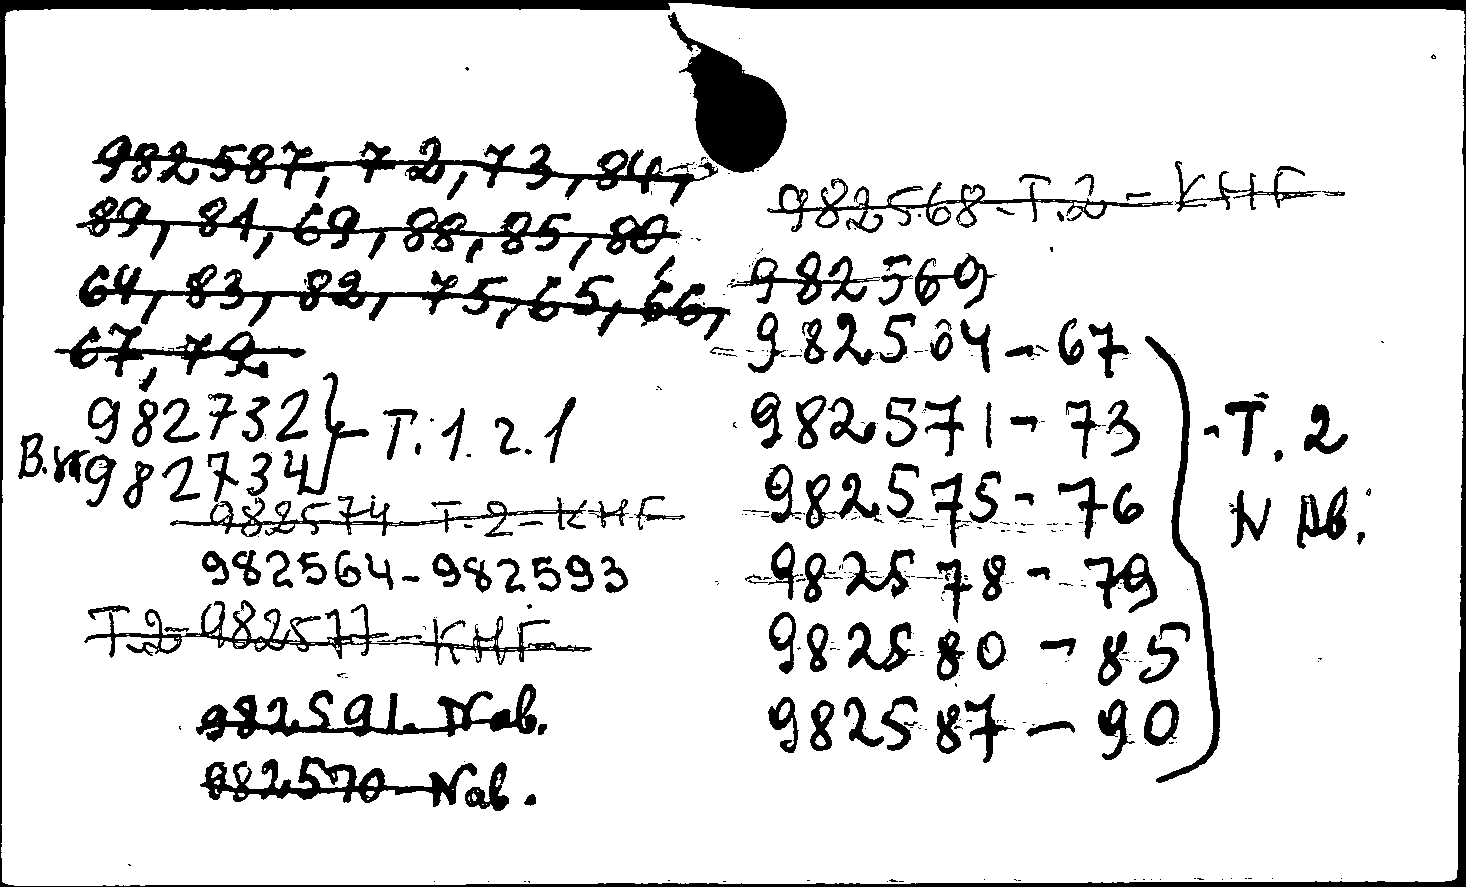 982587, 72, 73, 84,
89, 81, 69, 88, 85, 80
64, 83, 82, 75, 65, 66,
67, 79.
982732
982734 } - T. 1. 2. 1
982574 T-2-KHF
982564-982593
T.2-982577-KHF
982591. Nab.
982570-Nab.
982568-T.2-KHF
982569
982564-67
982571-73
982575-76
982578-79
982580-85
982587-90
} - T. 2
N Ab.